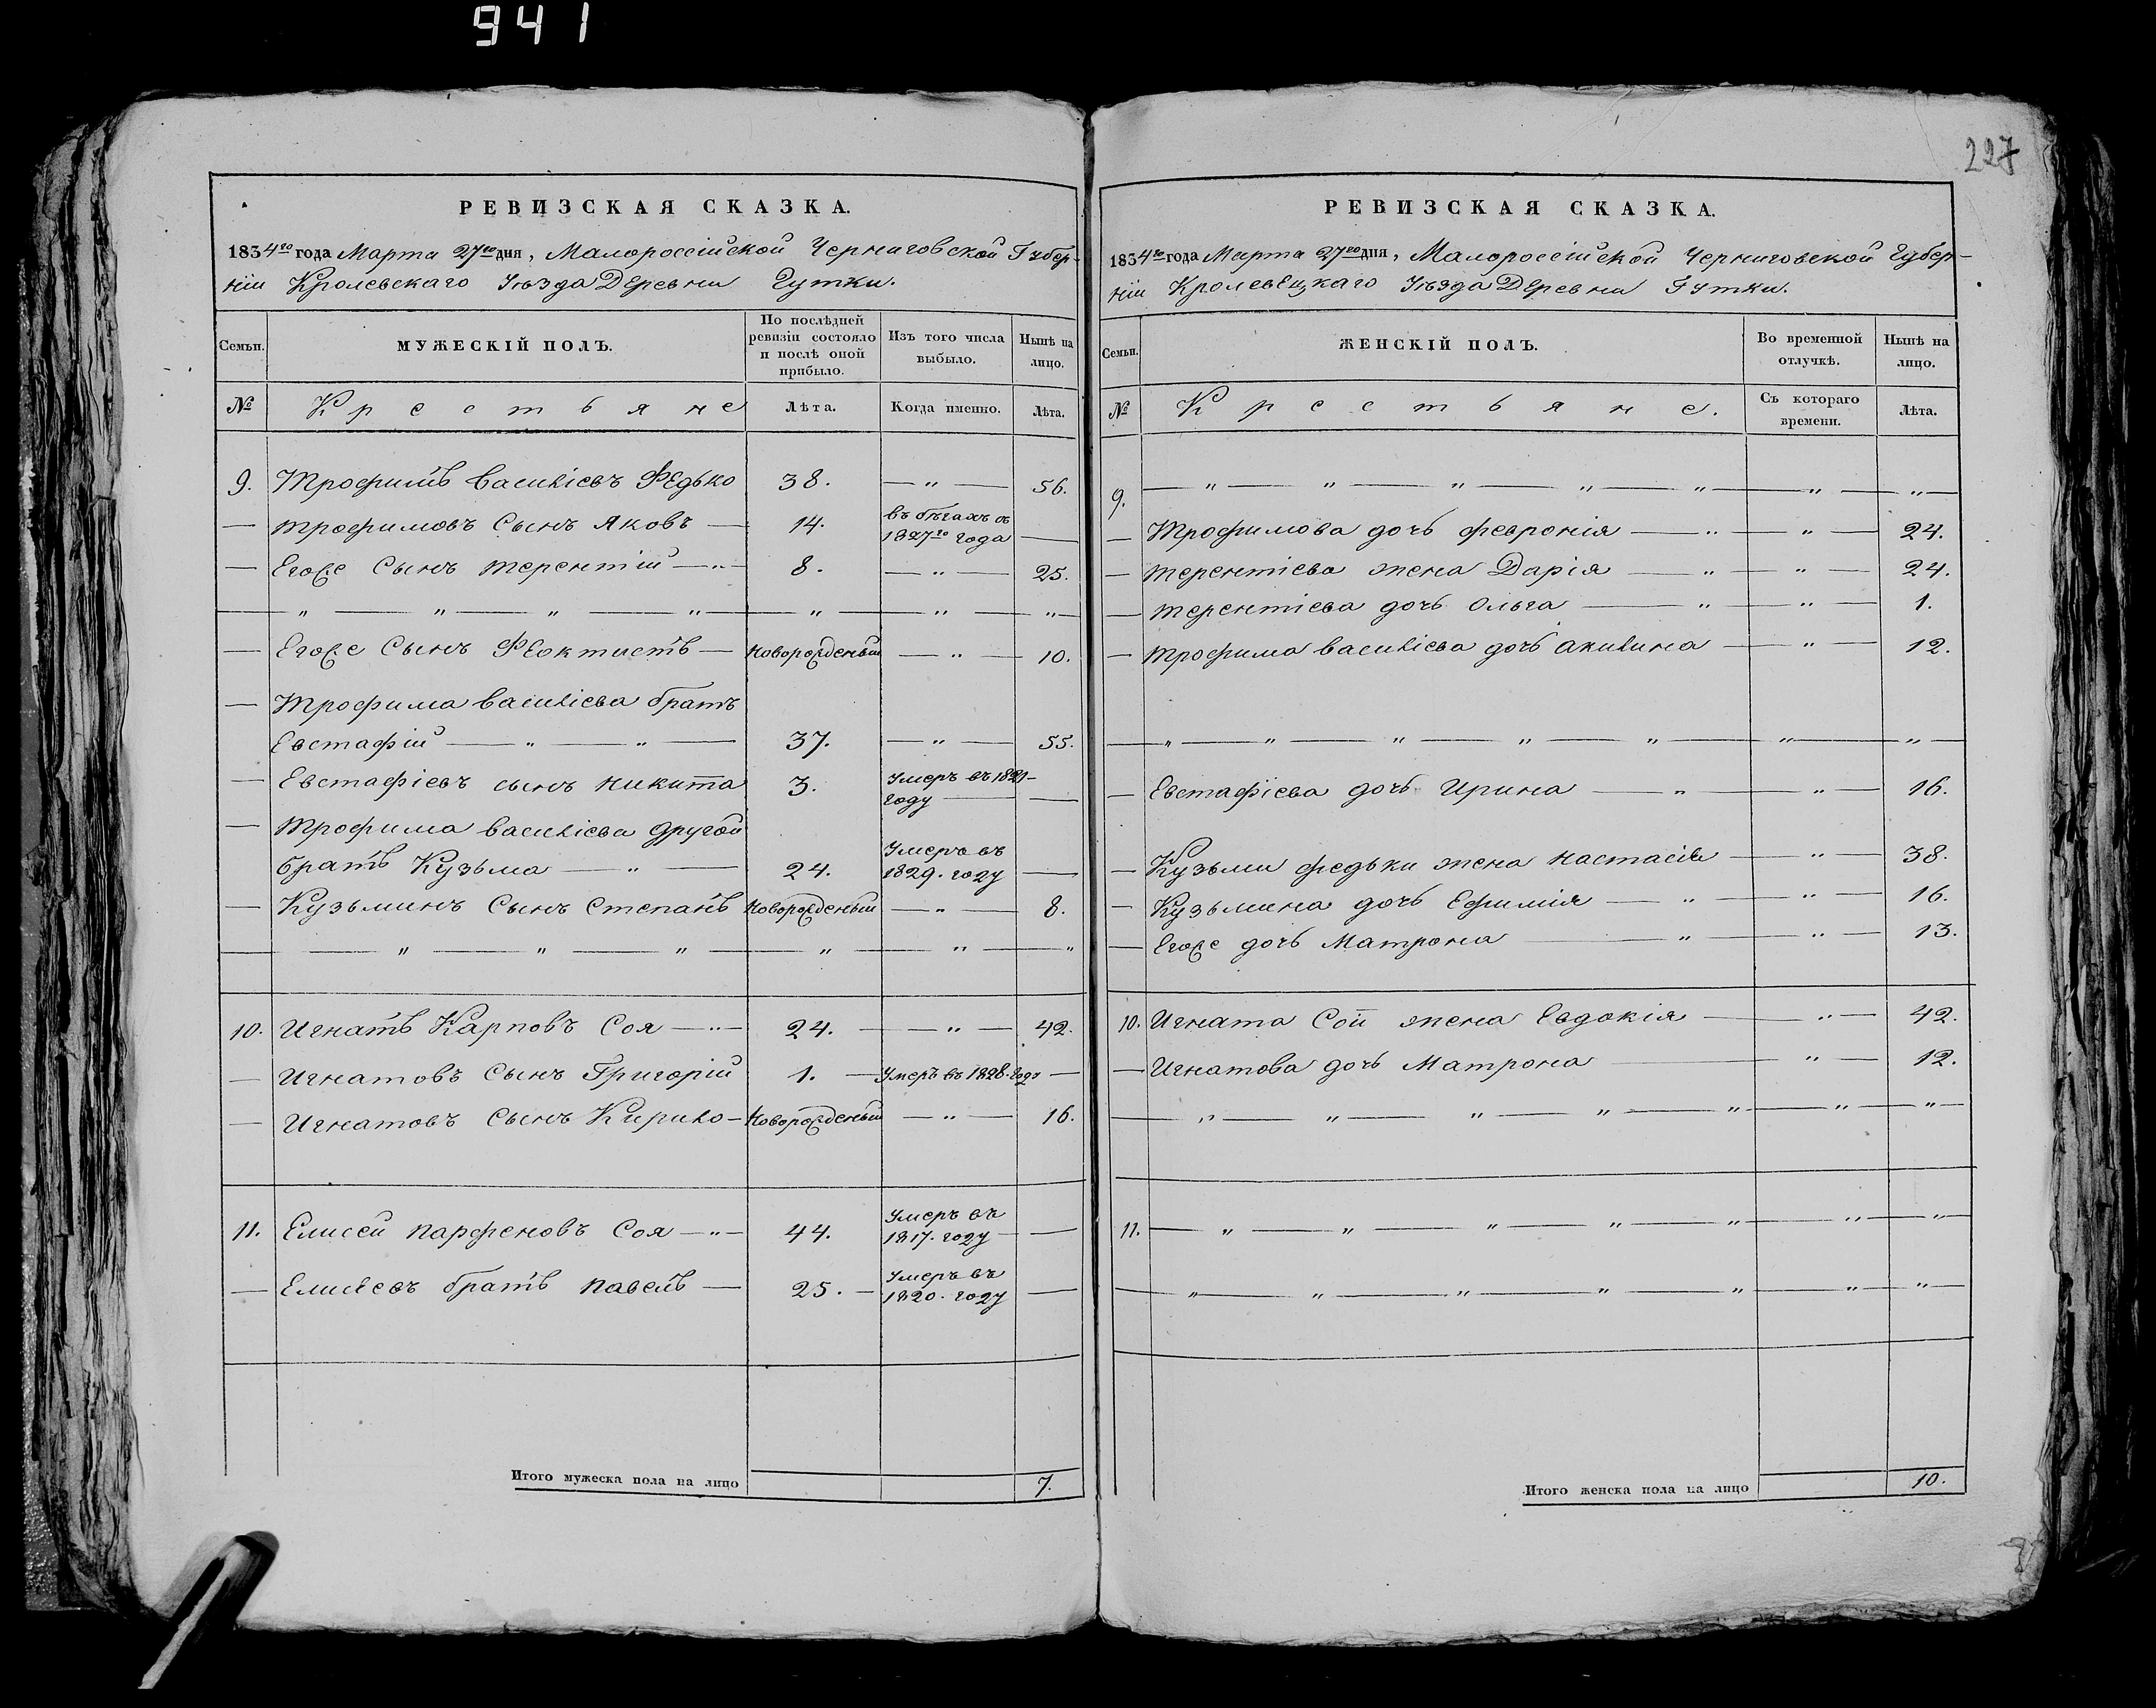 941
227
РЕВИЗСКАЯ СКАЗКА.
1834го года Марта 27го дня, Малороссійской Черниговской Губер-
ніи Кролевскаго Уѣзда Деревни Гутки.
Семьи. МУЖЕСКІЙ ПОЛЪ. По послѣдней ревизіи состояло и послѣ оной прибыло. Изъ того числа выбыло. Нынѣ на лицо.
№ Крестьяне Лѣта. Когда именно. Лѣта.
9. Трофимъ Василіевъ Федько 38. — " — 56.
— Трофимовъ Сынъ Яковъ — 14. въ бѣгахъ съ 1827го года —
— Егоже Сынъ Терентій — " — 8. — " — 25.
— " — " — " — " — " — " — " —
— Егоже Сынъ Феоктистъ — Новорожденный — " — 10.
— Трофима Василіева братъ
Евстафій — " — " — 37. — " — 55.
— Евстафіевъ сынъ Никита 3. Умеръ въ 1821- году — —
— Трофима Василіева другой
братъ Кузьма — " — 24. Умеръ въ 1829. году —
— Кузьминъ Сынъ Степанъ Новорожденный — " — 8.
— — " — " — " — " — " — "
10. Игнатъ Карповъ Соя — " — 24. — " — 42.
— Игнатовъ Сынъ Григорій 1. — Умеръ въ 1828. году —
— Игнатовъ Сынъ Кирило — Новорожденный — " — 16.
11. Елисей Парфеновъ Соя — " — 44. Умеръ въ 1817. году — —
— Елисѣевъ братъ Павелъ — 25. — Умеръ въ 1820. году —
Итого мужеска пола на лицо 7.
РЕВИЗСКАЯ СКАЗКА.
1834го года Марта 27го дня, Малороссійской Черниговской Губер-
ніи Кролевецкаго Уѣзда Деревни Гутки.
Семьи. ЖЕНСКІЙ ПОЛЪ. Во временной отлучкѣ. Нынѣ на лицо.
№ Крестьяне. Съ котораго времени. Лѣта.
9. — " — " — " — " — " — " — " —
— Трофимова дочь Февронія — " — " — 24.
— Терентіева жена Дарія — " — " — 24.
— Терентіева дочь Ольга — " — " — 1.
— Трофима Василіева дочь Акилина — " — 12.
— " — " — " — " — " — " — " —
— Евстафіева дочь Ирина — " — " — 16.
— Кузьми Федьки жена Настасія — " — 38.
— Кузьмина дочь Ефимія — " — " — 16.
— Егоже дочь Матрона — " — " — 13.
10. Игната Сои жена Евдокія — " — 42.
— Игнатова дочь Матрона — " — 12.
— " — " — " — " — " — " — " —
11. — " — " — " — " — " — " — " —
— " — " — " — " — " — " — " —
Итого женска пола на лицо 10.